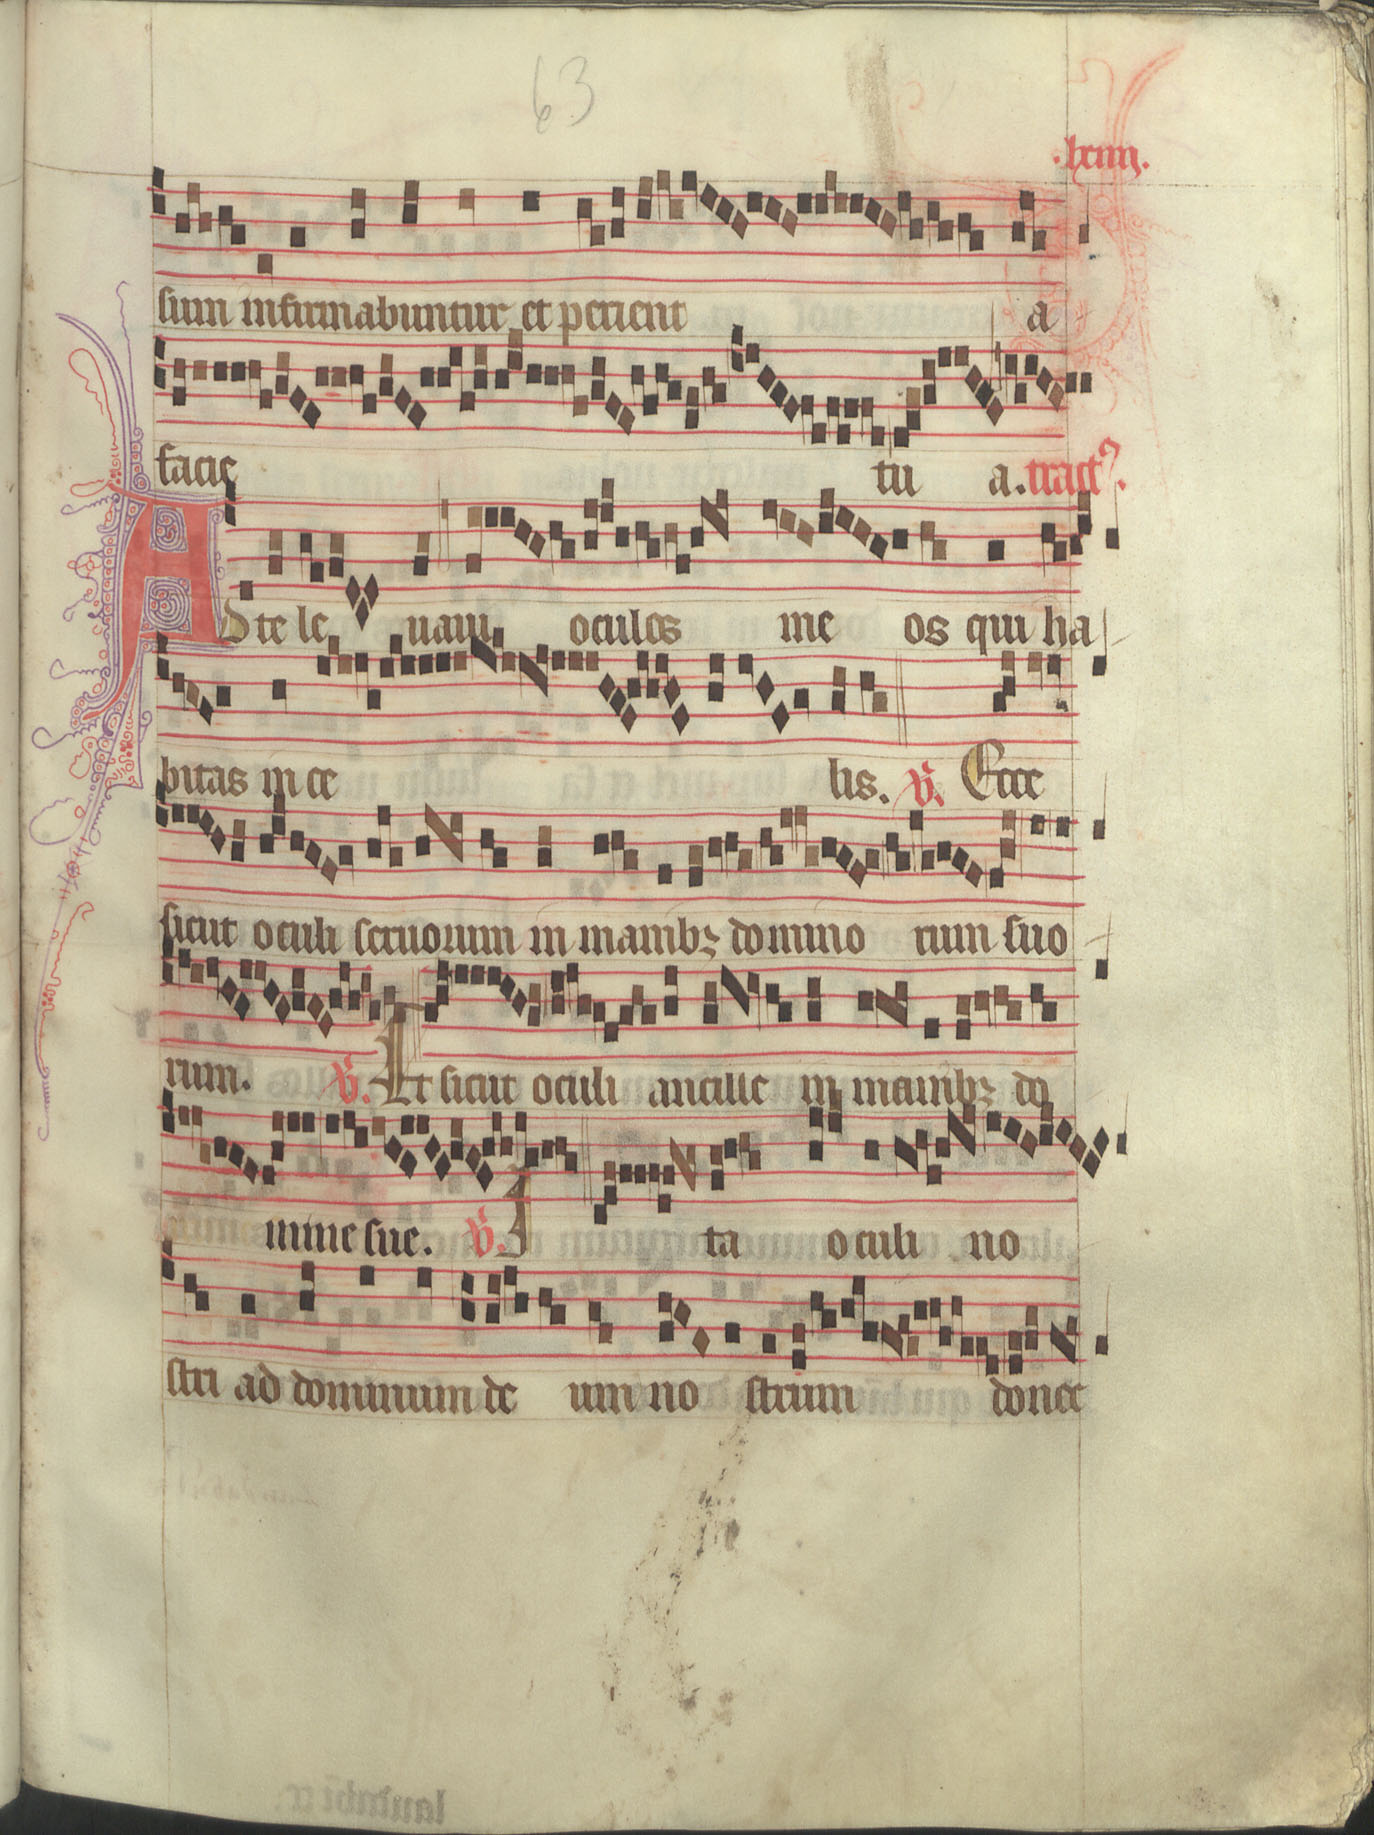 63
.lxiiii.
sum infirmabuntur et perient a
facie tu a. tract⁹.
Ad te le uaui oculos me os qui ha
bitas in ce lis. V. Ecce
sicut oculi seruorum in manibꝫ domino rum suo
rum. V. Et sicut oculi ancille in manibꝫ do
mine sue. V. I ta oculi no
stri ad dominum de um no strum donec